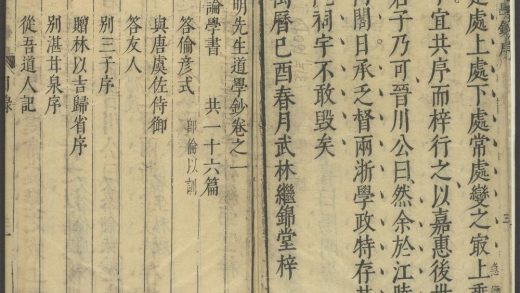 學鈔序
是處上處下處常處變之寂上乘
宜共序而梓行之以嘉惠後世
君子乃可晉川公曰然余於江
間日承乏督兩浙學政特存其
祠宇不敢毀矣
萬曆己酉春月武林繼錦堂梓
三
明先生道學鈔卷之一
論學書 共一十六篇
答倫彥式 即倫以訓
與唐虞佐侍御
答友人
別三子序
贈林以吉歸省序
別湛甘泉序
從吾道人記
目錄
一